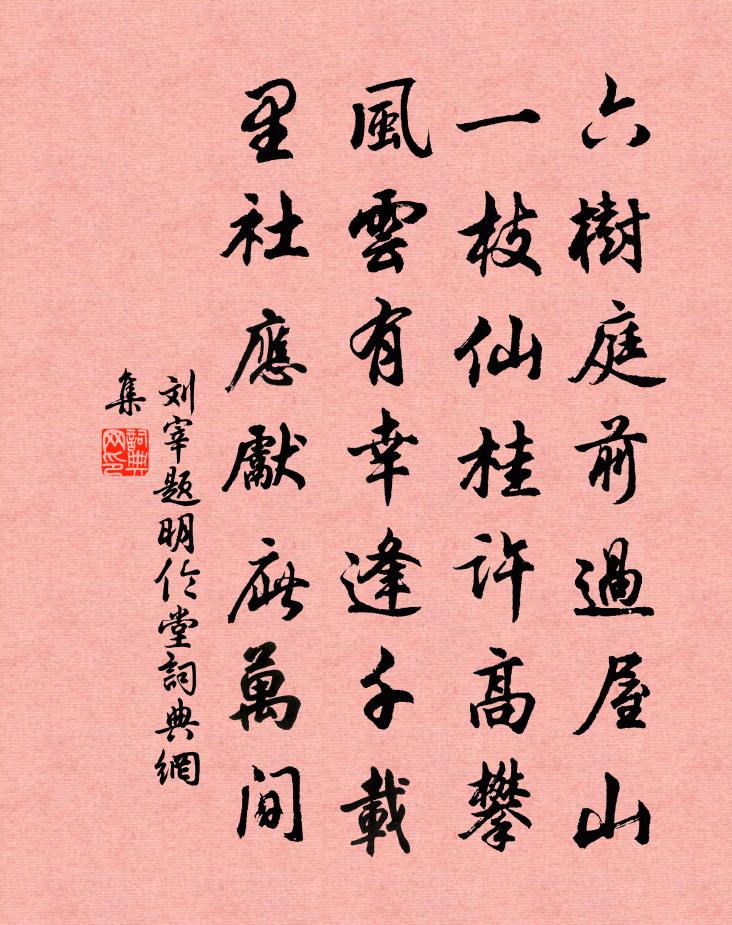 六樹庭前過屋山
一枝仙桂許高攀
風雲有幸逢千載
里社應獻庇萬間
刘宰题明伦堂詞典網
集
詞典
网印